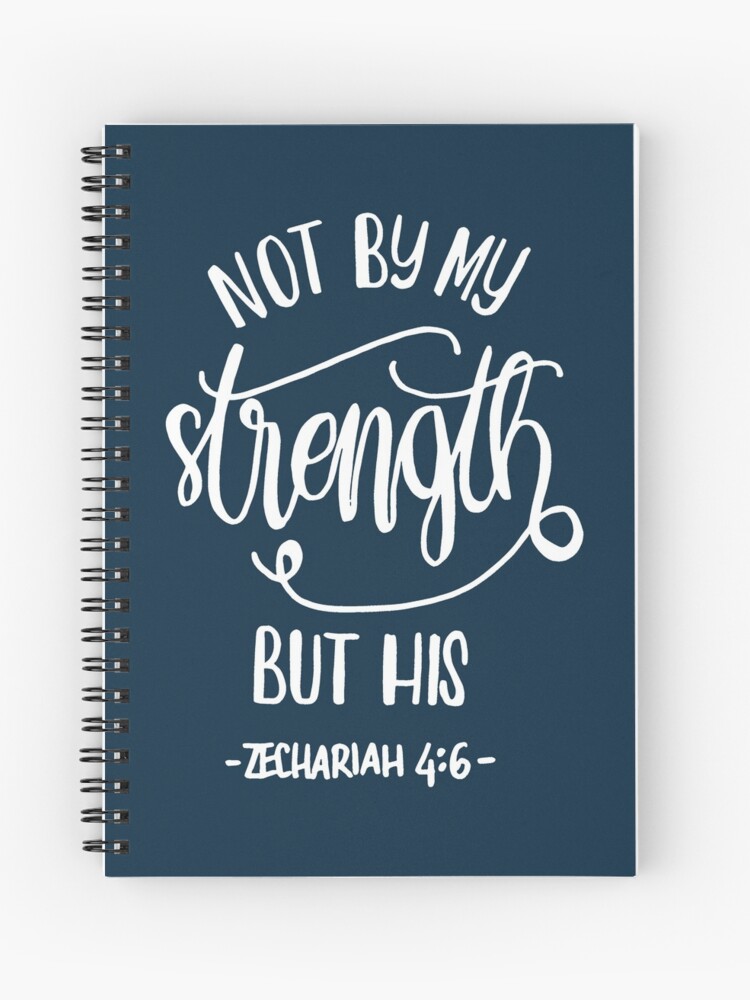 NOT BY MY
strength
BUT HIS
-ZECHARIAH 4:6-